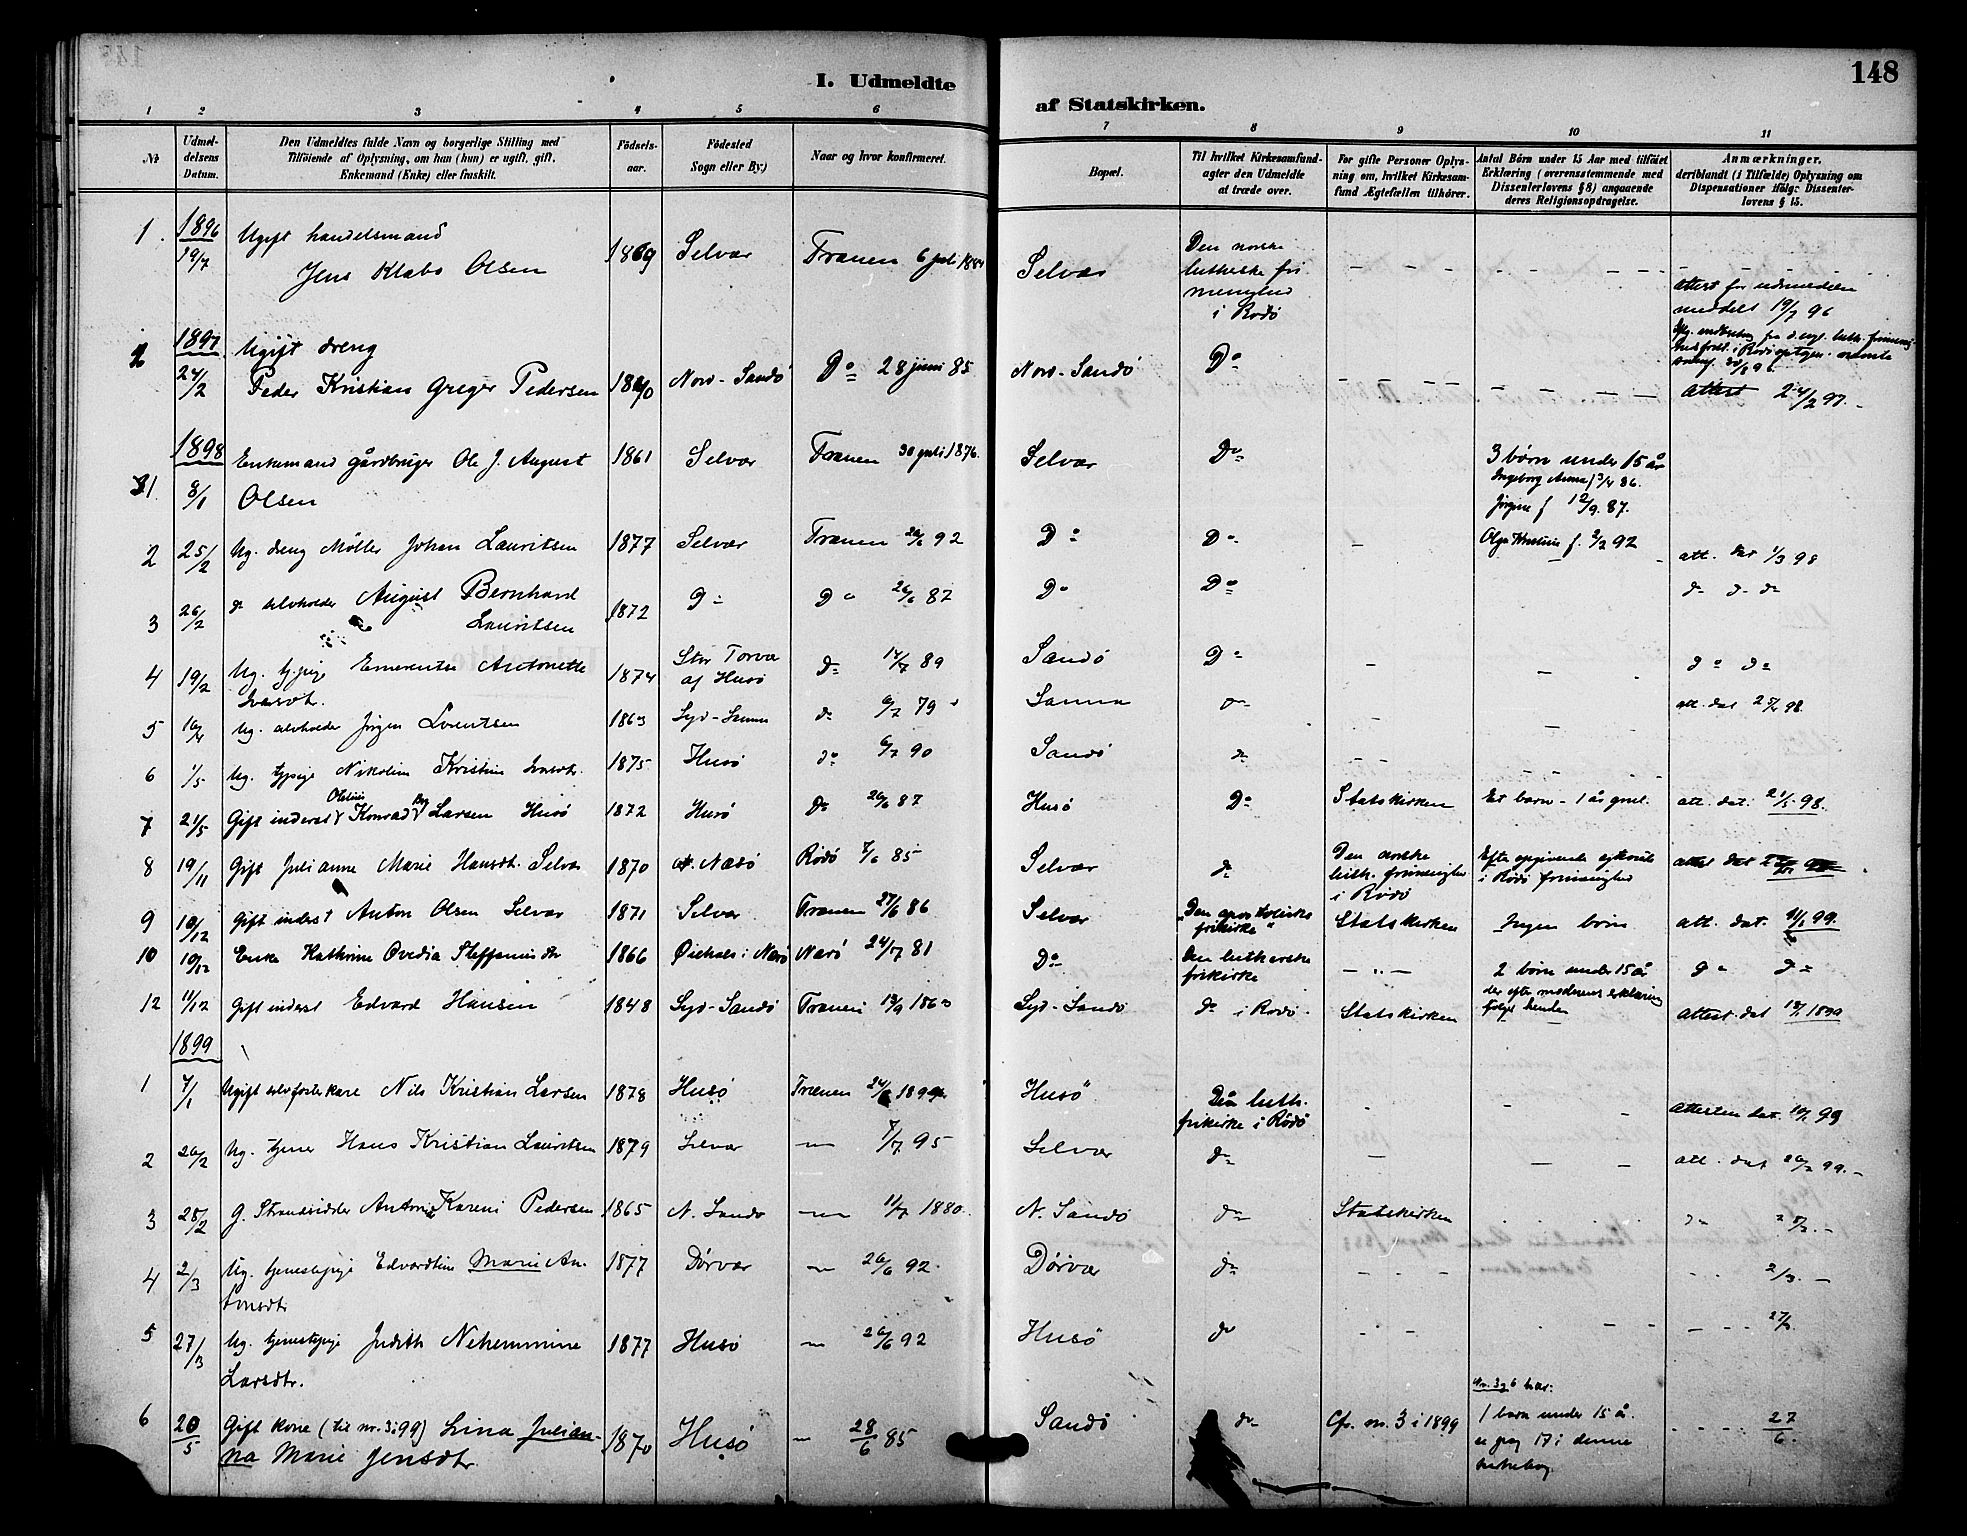 148
I. Udmeldte
af Statskirken.
1 2 3 4 5 6 7 8 9 10 11
Nr
Udmeldelsens Datum.
Den Udmeldtes fulde Navn og borgerlige Stilling med
Tilföiende af Oplysning, om han (hun) er ugift, gift,
Enkemand (Enke) eller fraskilt.
Födselsaar.
Födested
Sogn eller By.)
Naar og hvor konfirmeret.
Bopæl.
Til hvilket Kirkesamfund
agter den Udmeldte
at træde over.
For gifte Personer Oplysning
om, hvilket Kirkesamfund
Ægtefællen tilhörer.
Antal Börn under 15 Aar med tilföiet
Erklæring (overensstemmende med
Dissenterlovens § 8) angaaende
deres Religionsopdragelse.
Anmærkninger,
deriblandt (i Tilfælde) Oplysning om
Dispensationer ifölge Dissenterlovens § 15.
1. 1896 19/7 Ugift handelsmand Jens Klabo Olsen 1869 Selvær Trænen 6 juli 1884 Selvær Den norske lutherske frimenighed i Rödö – – – attest for udmeldelse meddelt 19/7 96
2 1897 24/2 Ugift dreng Peder Kristian Greger Pedersen 1870 Nord-Sandö Do 28 juni 85 Nord-Sandö Do – – – attest 24/2 97.
31. 1898 8/1 Enkemand gårdbruger Ole J. August Olsen 1861 Selvær Trænen 30 juli 1876. Selvær Do 3 børn under 15 år Ingeborg Anna f 3/4 86. Jørgine f 12/9 87. Olga Kristine f. 2/2 92
2 25/2 Ug. dreng Møller Johan Lauritsen 1877 Selvær Trænen 26/6 92 Do Do – att. dat 1/3 98
3 26/2 do selvholder August Bernhard Lauritsen 1872 Do Do 26/6 87 Do Do do do do
4 19/2 Ug. tj.pige Emerentse Antonette Ivarsdt. 1874 Stor Torvær af Husö do 14/7 89 Sandö Do – – do do
5 16/4 Ug. selvholder Jörgen Lorentsen 1863 Syd-Sanna do 6/7 79 Sanna do – – att. dat 25/4 98.
6 1/5 Ug. tjpige Nikoline Kristine Ivarsdt. 1875 Husö do 6/7 90 Sandö do – –
7 21/5 Gift inderst Konrad Larsen Husö 1872 Husö Do 26/6 87 Husö Do Statskirken Et barn – 1 år gml. att. dat. 21/5 98.
8 19/11 Gift Julianne Marie Hansdt. Selvær 1870 Næsö Rödö 7/6 85 Selvær do Den norske luth. frimenighed i Rödö Efter opgivende i Rödö frimenighed
9 10/12 Gift inderst Anton Olsen Selvær 1871 Selvær Trænen 27/6 86 Selvær "Den apostoliske frikirke" Statskirken Ingen börn att. dat. 11/1 99.
10 10/12 Enke Kathrine Ovedia Steffensdtr 1866 Öiehals i Nærö Nærö 24/7 81 Do Den lutherske frikirke – " – 2 børn under 15 år der efter moderens erklæring følger hende do do
12 11/12 Gift inderst Edvard Hansen 1848 Syd-Sandö Trænen Syd-Sandö do i Rödö. Statskirken – attest dat 1899
1899
1 7/1 Ugift Nils Kristian Larsen 1878 Husö Trænen Husö Den luth. frikirke i Rödö – – attesten dat. 10/1 99
2 26/2 Ug. tjener Hans Kristian Lauritsen 1879 Selvær – 7/7 95 Selvær do – – att. dat 26/2 99.–
3 28/2 g. Strandsidder Anton Kareni Pedersen 1865 N. Sandö – 11/7 1880. N. Sandö do Statskirken do
4 2/3 Ug. tjenestepige Edvardine Marie Antonsdt. 1877 Dörvær – 26/6 92. Dörvær do – – 2/3. –
5 27/3 Ug. tjenestepige Judith Nehemmine Larsdtr. 1877 Husö – 26/6 92 Husö do – – 27/3
6 20/5 Gift kone (til nr. 3 i 99) Lina Julianna Marie Jensdtr 1870 Husö – 28/6 85 Sandö do Cfr. nr. 3 i 1899 Nr. 3 og 6 har: 1 barn under 15 år. se pag 17 i denne kirkebog. 27/6.